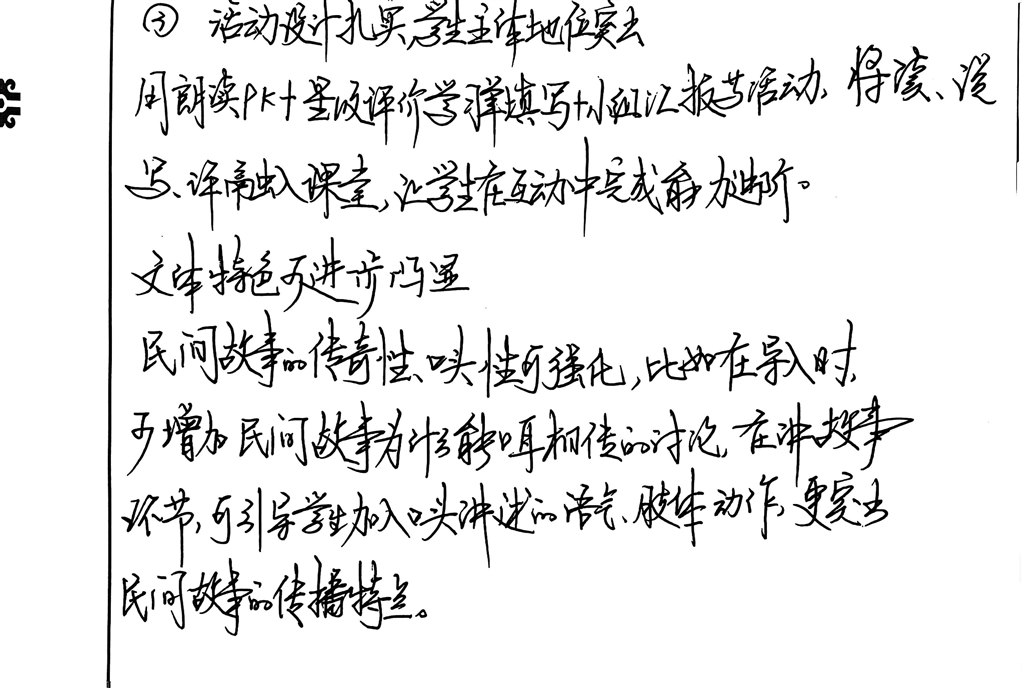 ③ 活动设计扎实,学生主体地位突出
用朗读PK+星级评价学习单填写+小组汇报等活动、将读、说
写、评融入课堂,让学生在互动中完成能力进阶。
文体特色可进步凸显
民间故事的传奇性、口头性可强化,比如在导入时,
可增加民间故事为什么能口耳相传的讨论,在讲故事
环节,可引导学生加入口头讲述的语气、肢体动作,更突出
民间故事的传播特点。